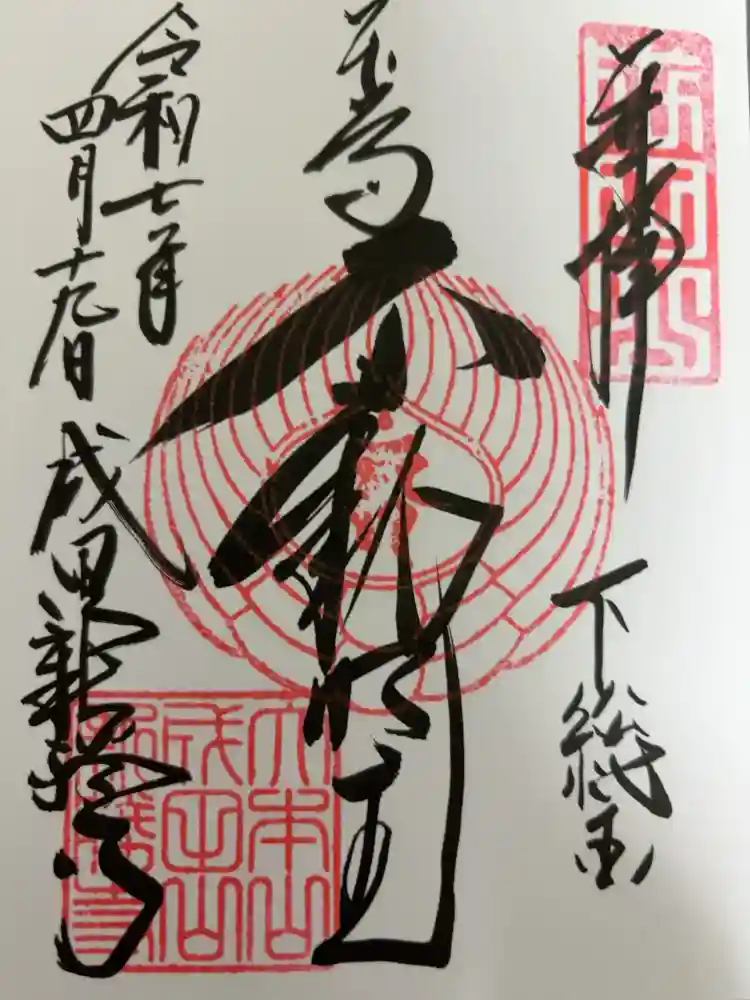 奉拝
下総国
不動明王
令和七年
四月十九日
成田新勝寺
大本山
成田山
新勝寺